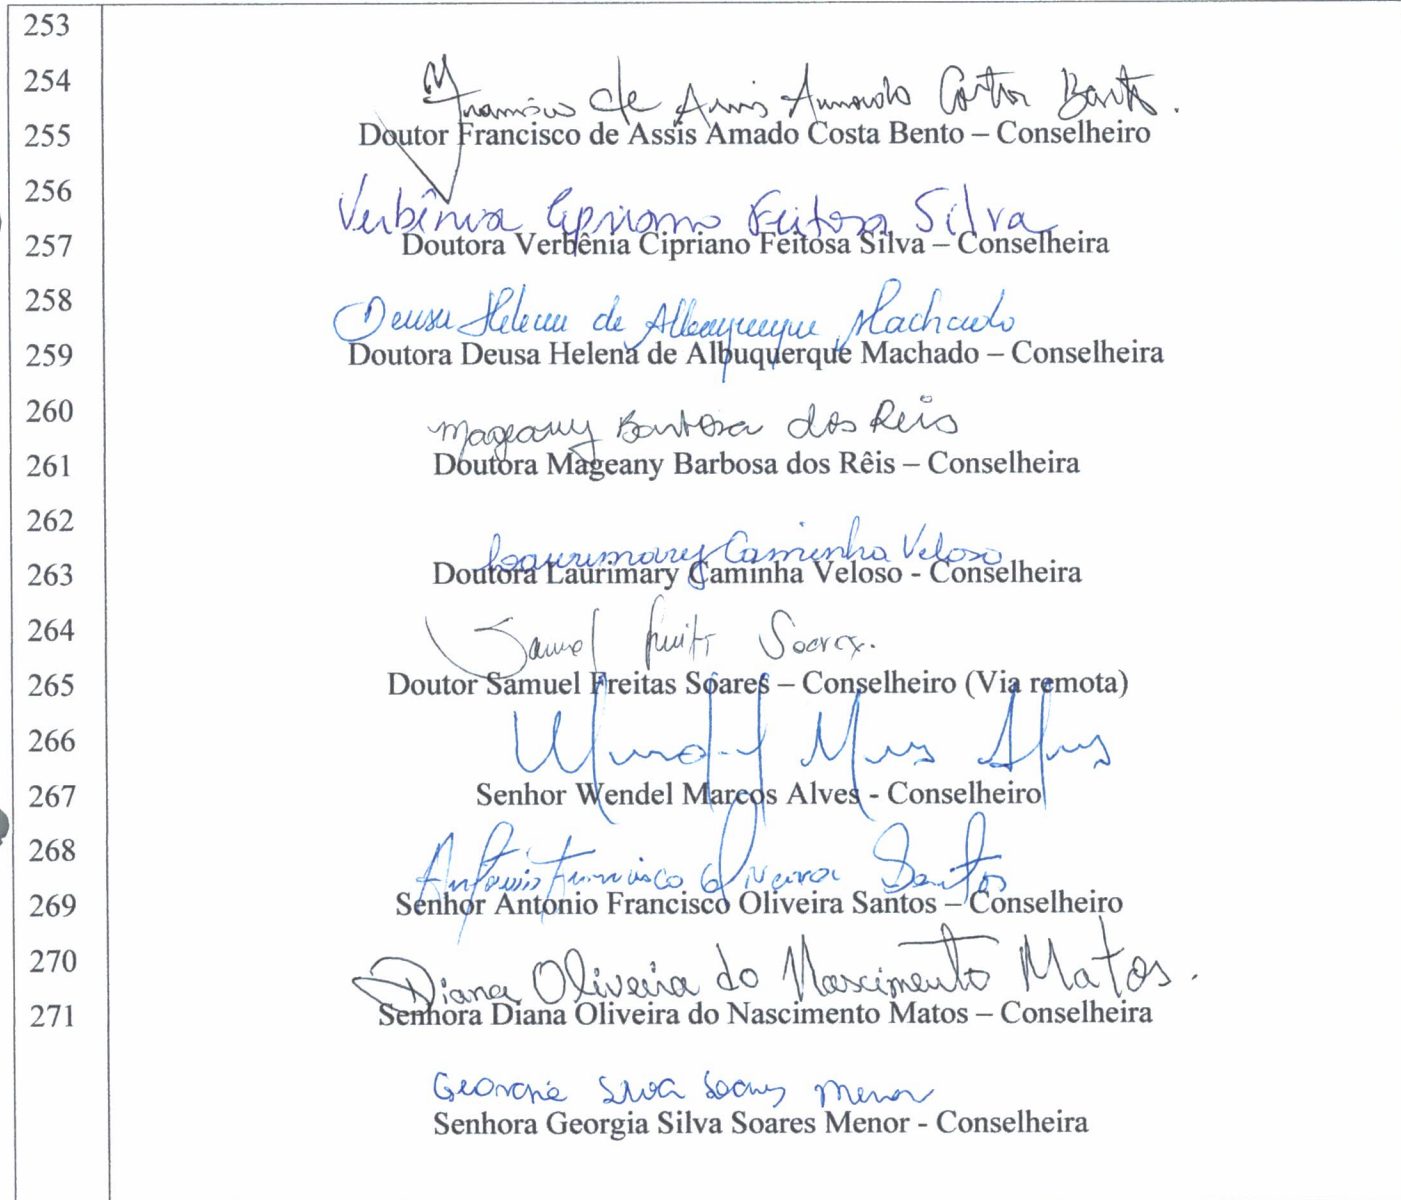 253
254
Francisco de Assis Amado Costa Bento.
255 Doutor Francisco de Assis Amado Costa Bento – Conselheiro
256
Verbênia Cipriano Feitosa Silva
257 Doutora Verbênia Cipriano Feitosa Silva – Conselheira
258
Deusa Helena de Albuquerque Machado
259 Doutora Deusa Helena de Albuquerque Machado – Conselheira
260
Mageany Barbosa dos Reis
261 Doutora Mageany Barbosa dos Rêis – Conselheira
262
Laurimary Caminha Veloso
263 Doutora Laurimary Caminha Veloso - Conselheira
264
Samuel Freitas Soares.
265 Doutor Samuel Freitas Soares – Conselheiro (Via remota)
266
Wendel Marcos Alves
267 Senhor Wendel Marcos Alves - Conselheiro
268
Antonio Francisco Oliveira Santos
269 Senhor Antonio Francisco Oliveira Santos – Conselheiro
270
Diana Oliveira do Nascimento Matos.
271 Senhora Diana Oliveira do Nascimento Matos – Conselheira
Georgia Silva Soares Menor
Senhora Georgia Silva Soares Menor - Conselheira